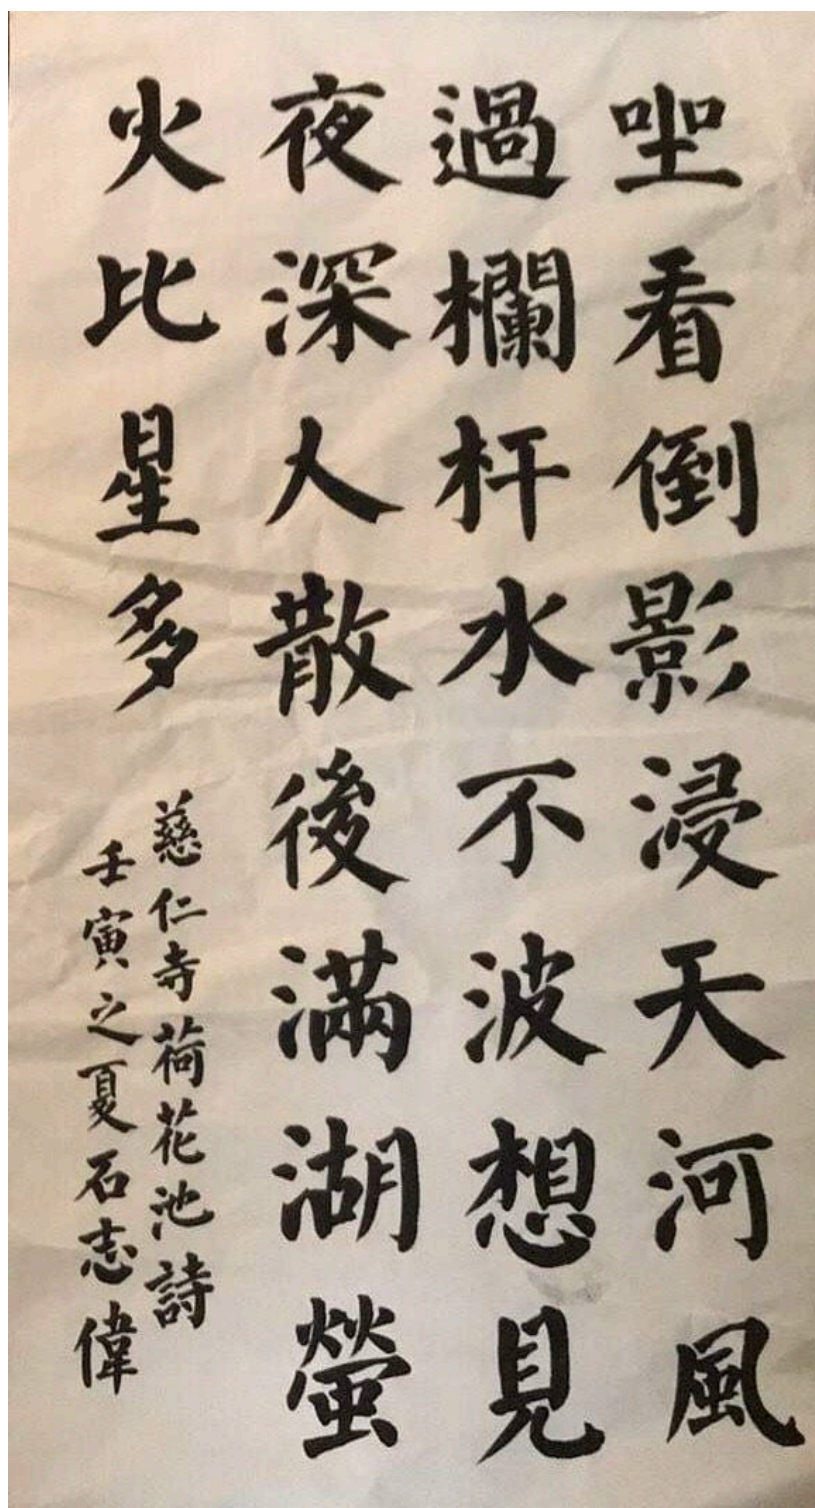 坐看倒影浸天河風
過欄杆水不波想見
夜深人散後滿湖螢
火比星多
慈仁寺荷花池詩
壬寅之夏石志偉